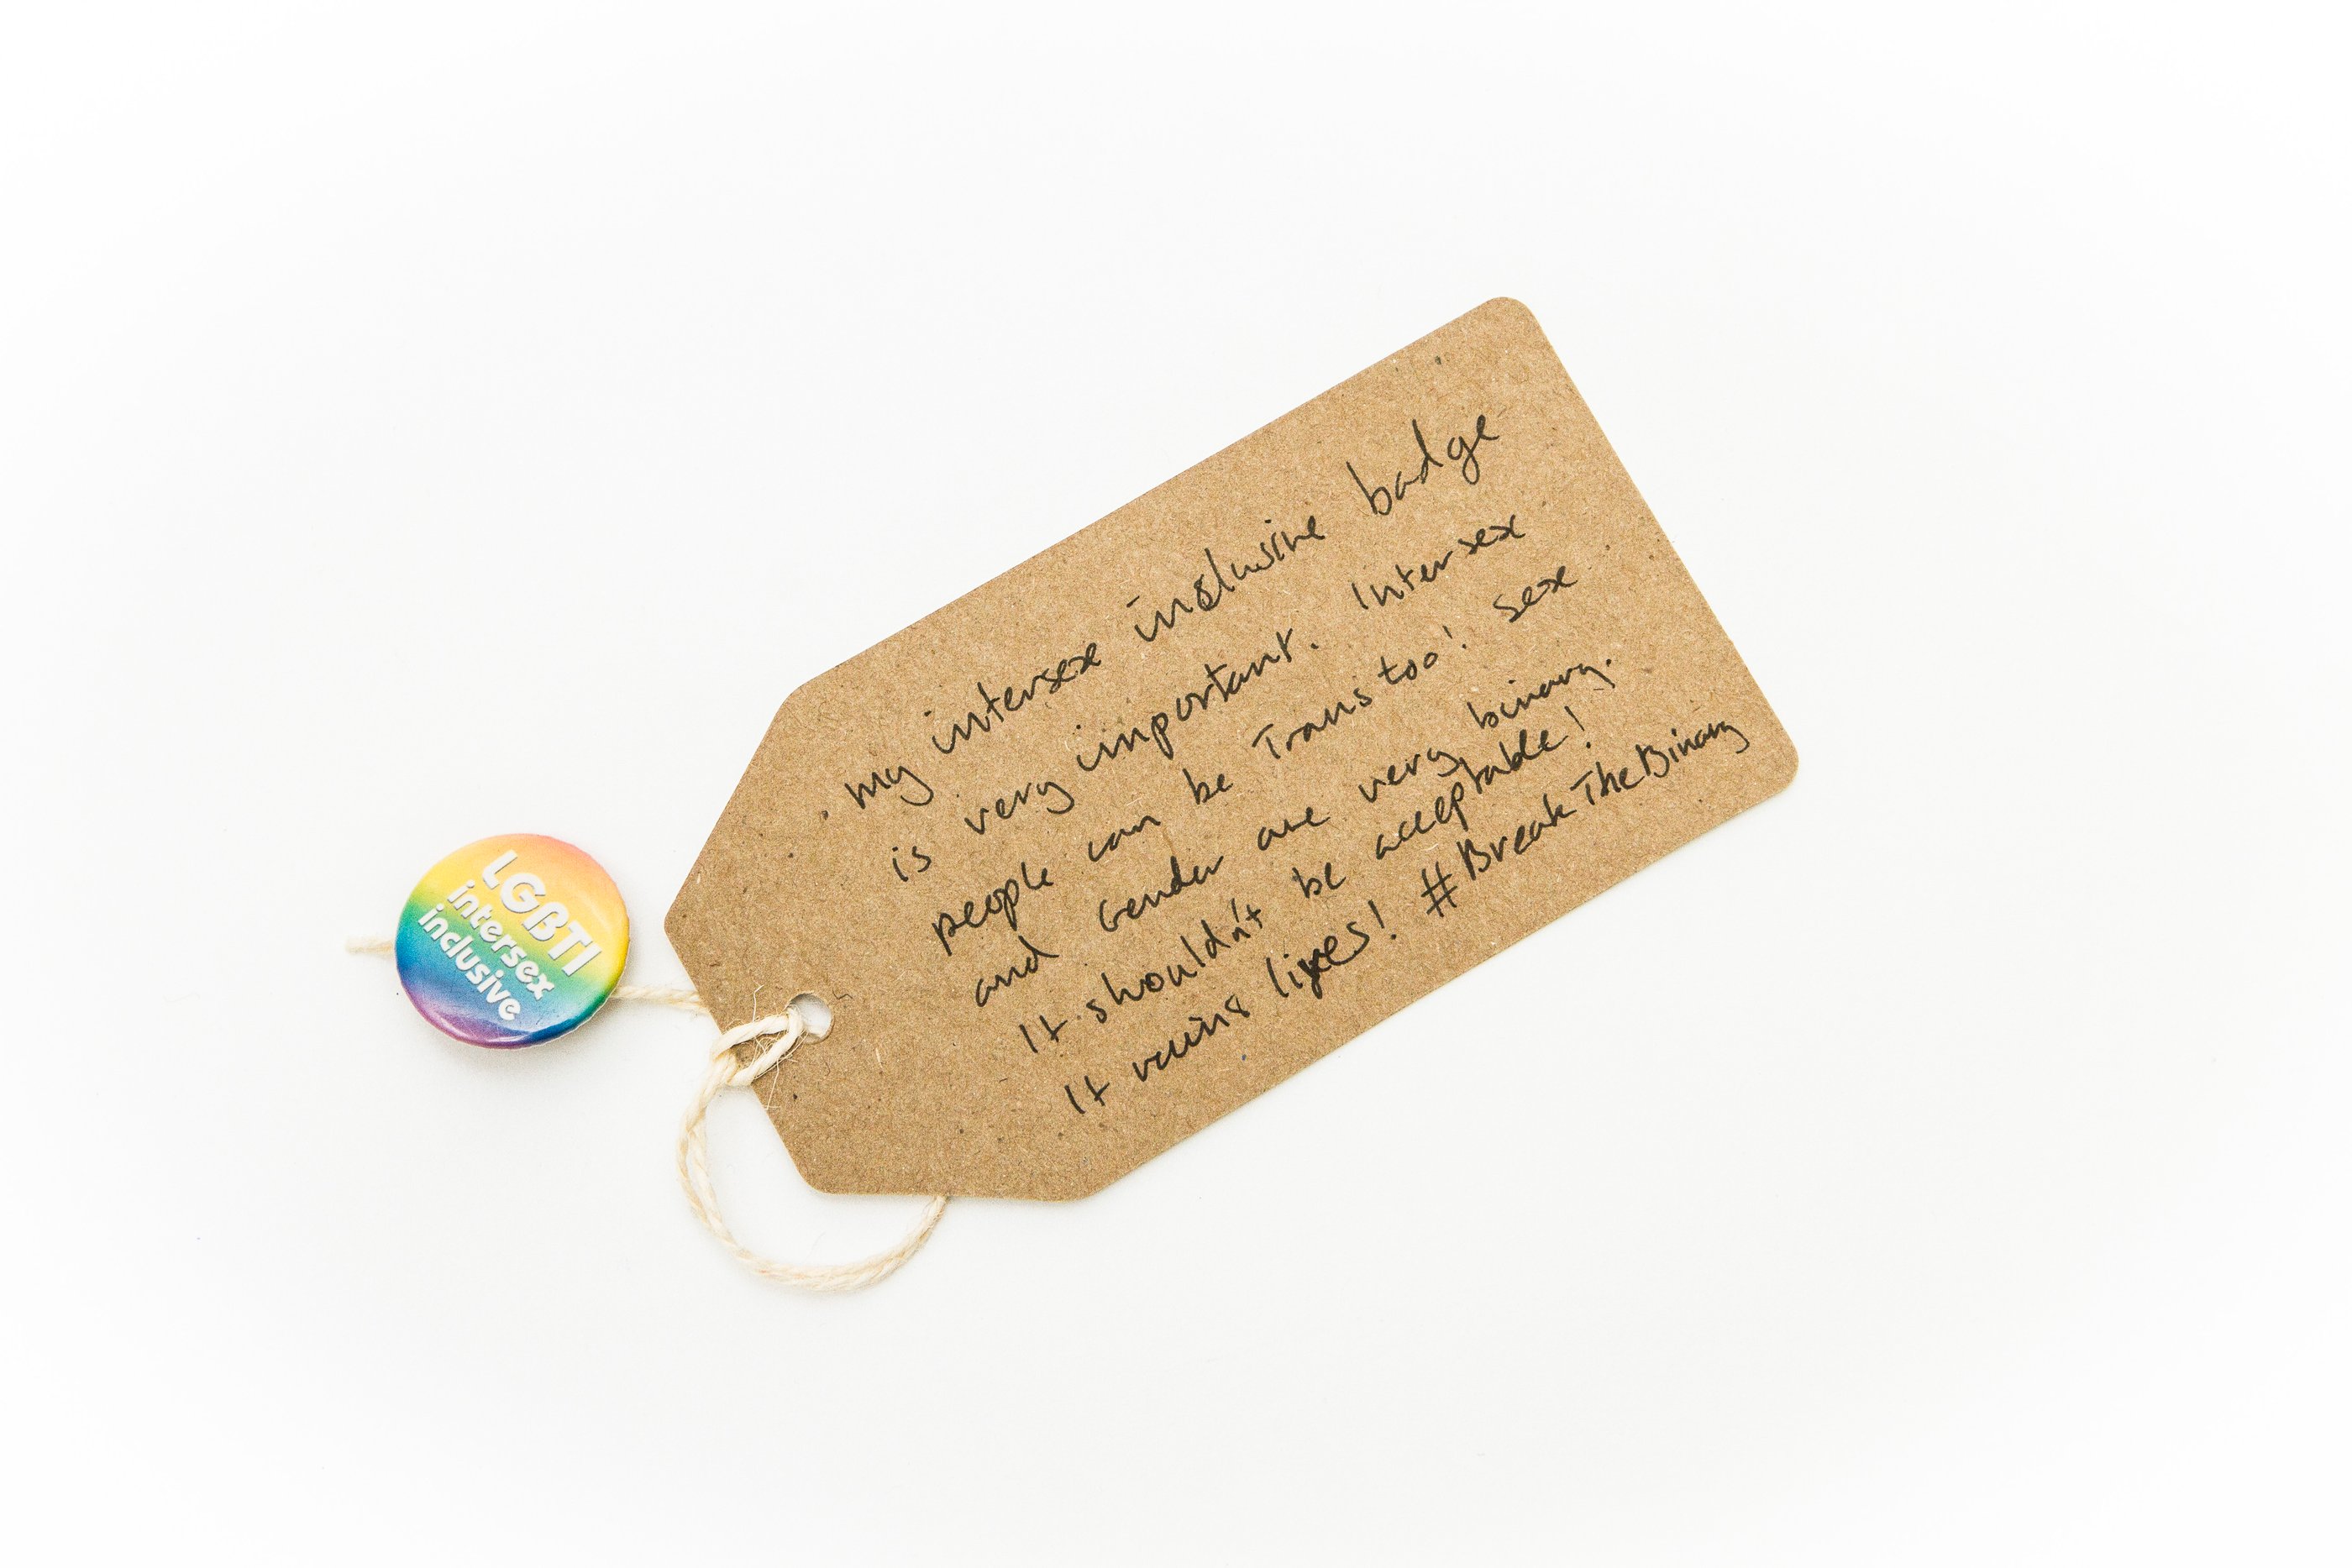 LGBTI
intersex
inclusive
my intersex inclusive badge
is very important. Intersex
people can be Trans too! sex
and Gender are very binary.
It shouldn't be acceptable!
It ruins lives! #BreakTheBinary